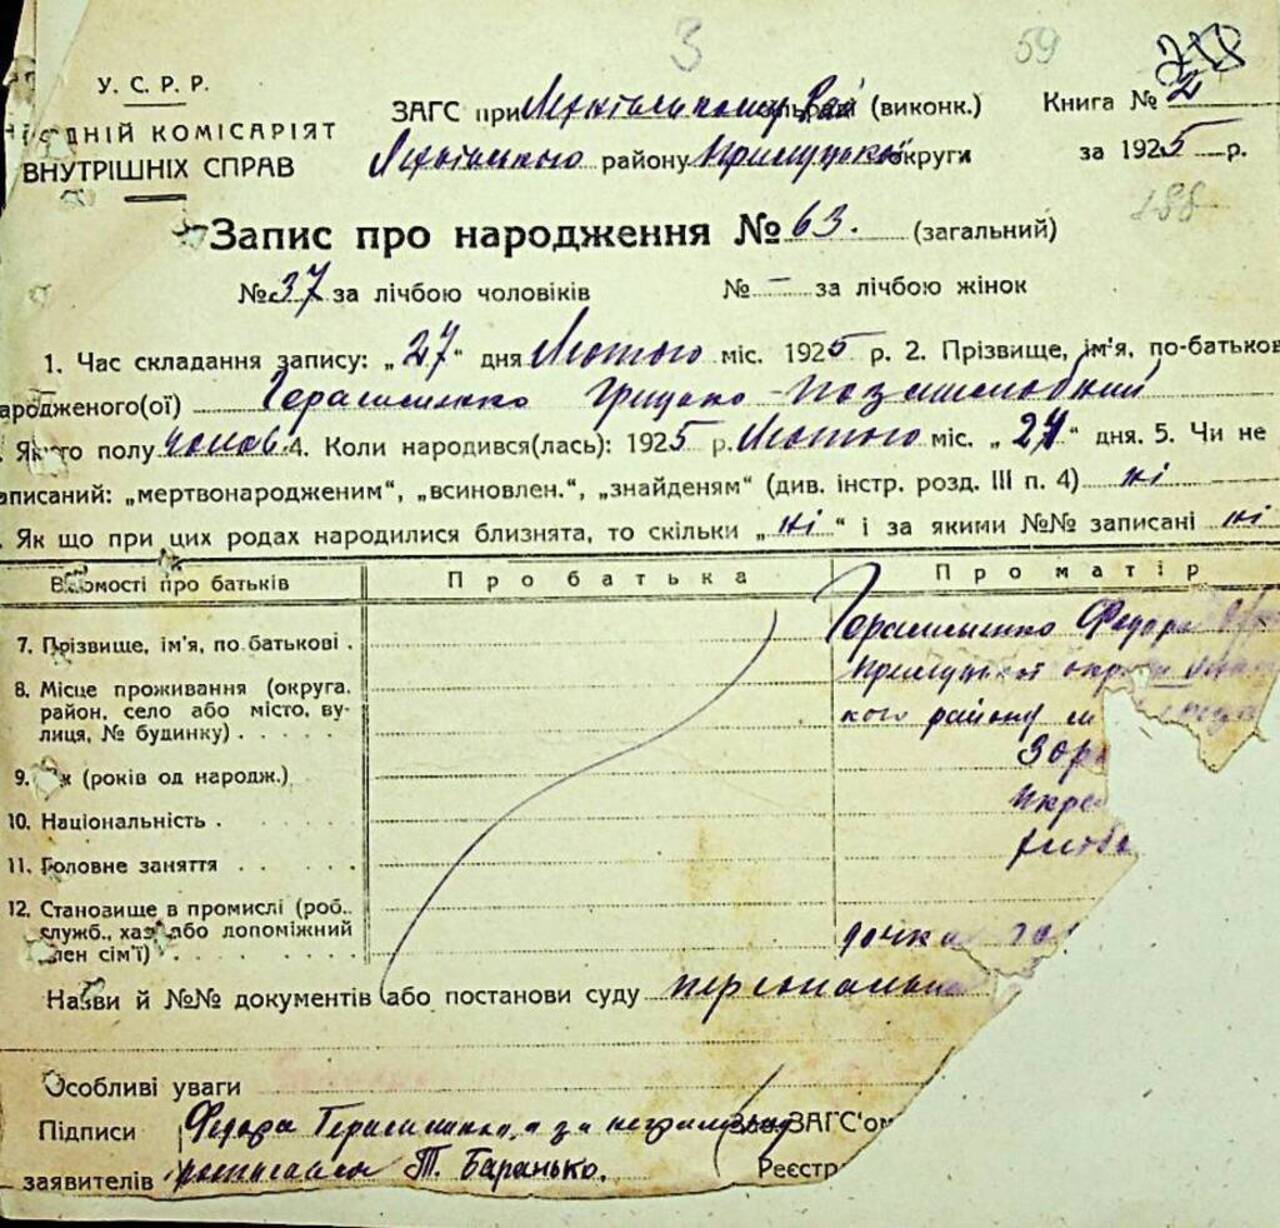 3 59
У. С. Р. Р.
НІЙ КОМІСАРІЯТ
ВНУТРІШНІХ СПРАВ
ЗАГС при (виконк.) Книга № 2
району Прилуцької округи за 1925 р.
188
Запис про народження № 63. (загальний)
№ 37 за лічбою чоловіків № – за лічбою жінок
1. Час складання запису: „27“ дня Лютого міс. 1925 р. 2. Прізвище, ім'я, по-батьков
ародженого(ої) Герасименко Грицько позашлюбний
Якого полу чолов. 4. Коли народився(лась): 1925 р. Лютого міс. „24“ дня. 5. Чи не
аписаний: „мертвонародженим“, „всиновлен.“, „знайденям“ (див. інстр. розд. III п. 4) ні
Як що при цих родах народилися близнята, то скільки „ні“ і за якими №№ записані ні
Відомості про батьків Про батька Про матір
7. Прізвище, ім'я, по батькові . Герасименко Федора
8. Місце проживання (округа, Прилуцької округи
район, село або місто, ву- кого району
лиця, № будинку) . . . .
9. (років од народж.) 30 р
10. Національність . Укра
11. Головне заняття . . . . хлібо
12. Становище в промислі (роб.,
служб., хаз. або допоміжний
член сім'ї) . . . . . дочка
Назви й №№ документів або постанови суду персональна
Особливі уваги
Підписи Федора Герасименко, а за неграмотну Зав. ЗАГС'ом
заявителів росписався Т. Баранько. Реєстр